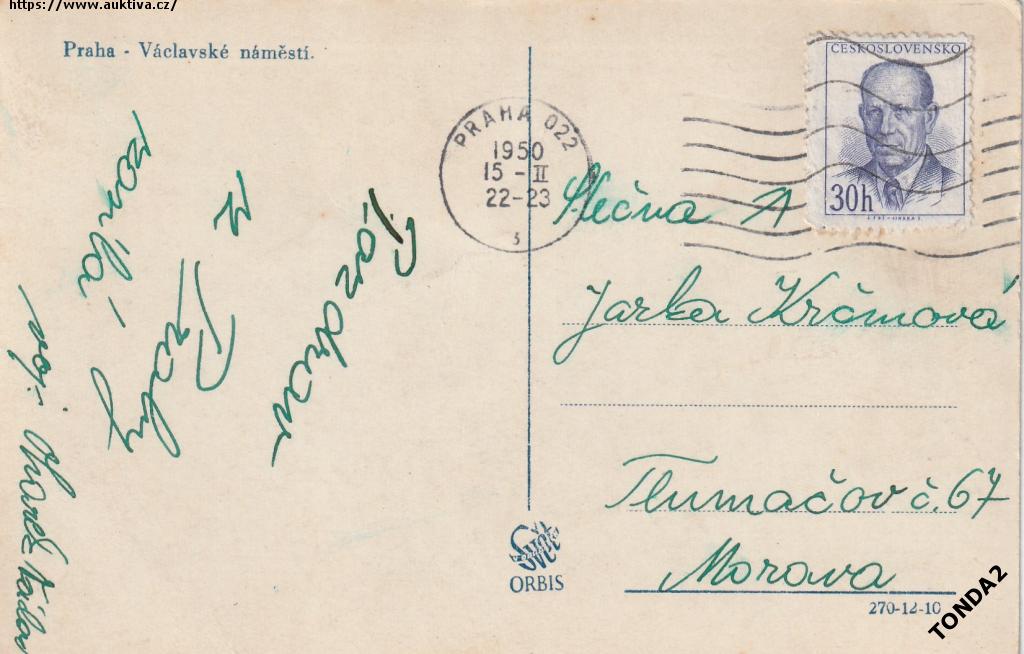 https://www.auktiva.cz/
Praha - Václavské náměstí.
ČESKOSLOVENSKO
30h
PRAHA 022
1950
15 - II
22-23
Pozdrav
z
Prahy
posílá
Slečna
Jarka Krčmová
Tlumačov č. 67
Morava
ORBIS
270-12-10
TONDA2